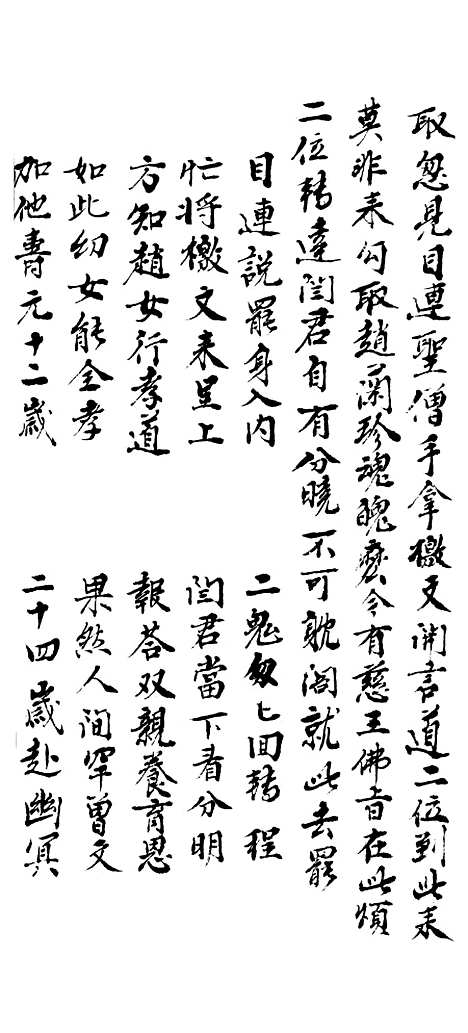 取忽見目連聖僧手拿檄文開言道二位到此来
莫非来勾取趙蘭珍魂魄麽今有慈王佛旨在此煩
二位轉達閆君自有分曉不可躭阁就此去罷
目連說罷身入内 二鬼匆匕回轉程
忙将檄文来呈上 閆君當下看分明
方知趙女行孝道 報荅双親養育恩
如此幼女能全孝 果然人间罕曾文
加他壽元十二歲 二十四歲赴幽冥